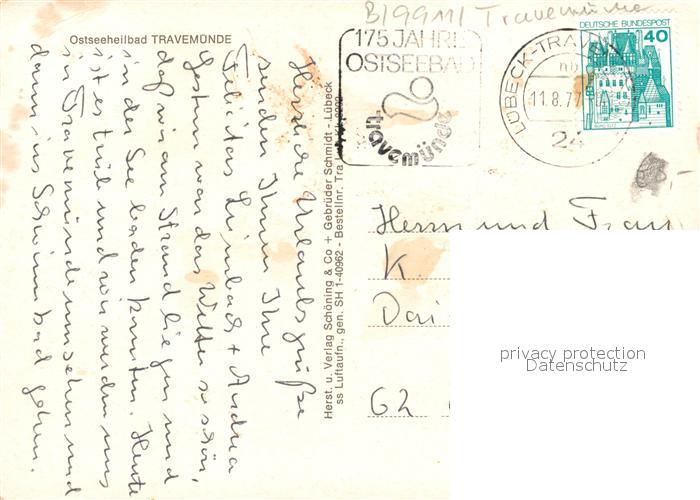 B199111 Travemünde
Ostseeheilbad TRAVEMÜNDE
175 JAHRE
OSTSEEBAD
travemünde
LÜBECK-TRAVEM
11.8.77
24
DEUTSCHE BUNDESPOST
40
Herzliche Urlaubsgrüße
senden Ihnen Ihre
Felicitas + Andrea
Gestern war das Wetter so schön,
daß wir am Strand liegen und
in der See baden konnten. Heute
ist es trüb und wir werden uns
in Travemünde umsehen und
dann ins Schwimmbad gehen.
Herst. u. Verlag Schöning & Co + Gebrüder Schmidt - Lübeck
ss Luftaufn., gen. SH 1-40962 - Bestellnr. Tra
Herrn und Frau
K.
Dai
62
privacy protection
Datenschutz